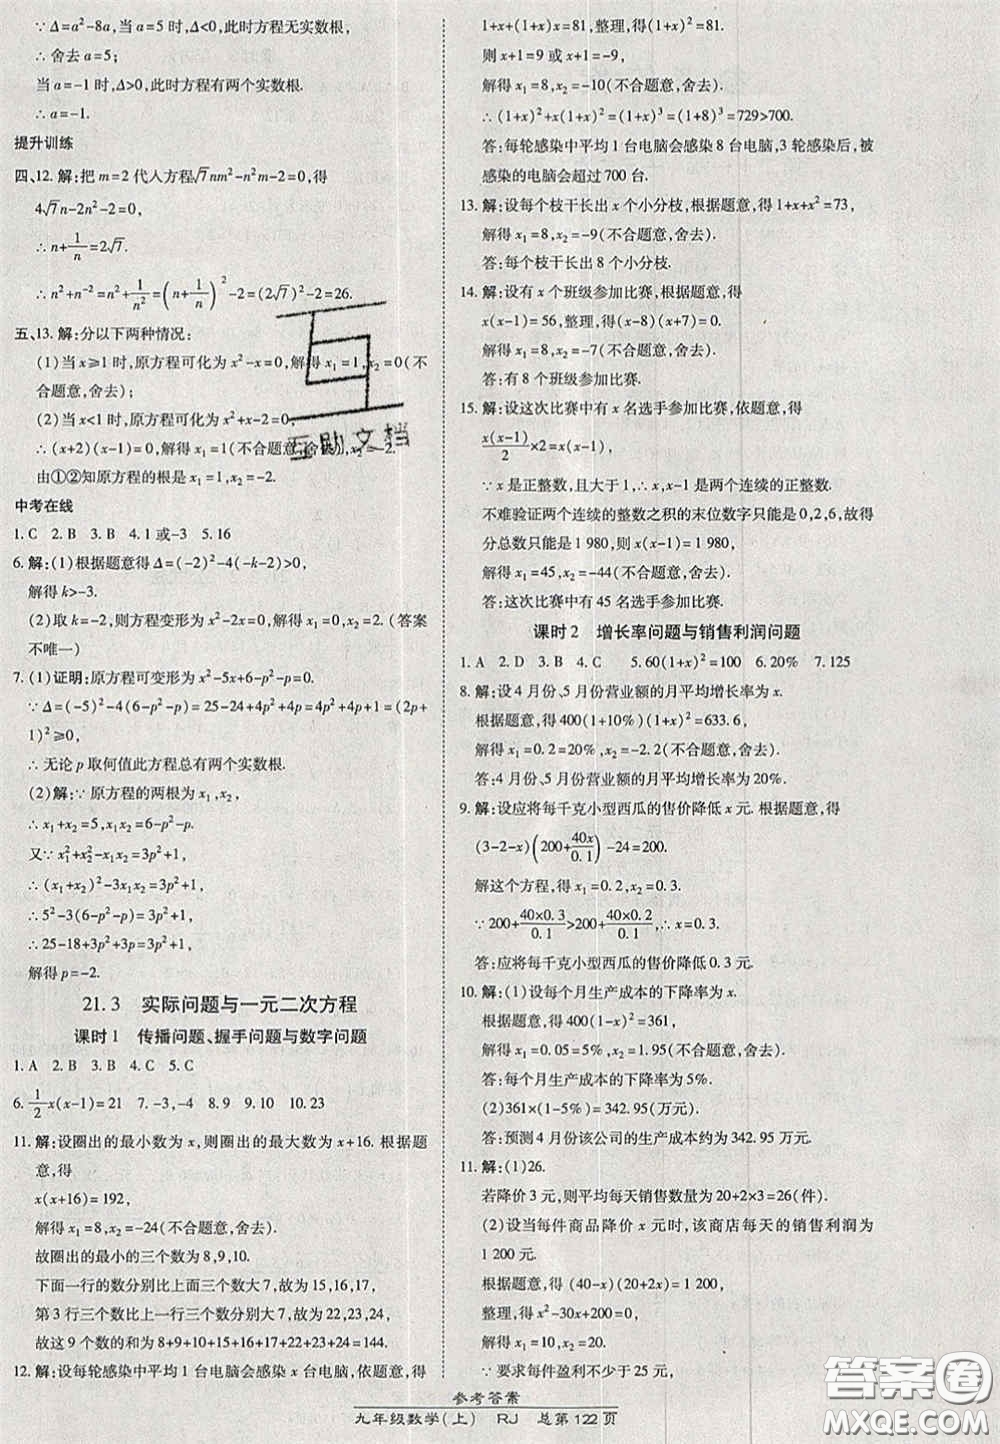 ∵Δ=a²-8a,当 a=5 时,Δ<0,此时方程无实数根,
∴舍去 a=5;
当 a=-1 时,Δ>0,此时方程有两个实数根.
∴a=-1.
提升训练
四、12. 解:把 m=2 代人方程√7nm²-n²m-2=0,得
4√7n-2n²-2=0,
∴n+1/n=2√7.
∴n²+n⁻²=n²+1/n²=(n+1/n)²-2=(2√7)²-2=26.
五、13. 解:分以下两种情况:
(1)当 x≥1 时,原方程可化为 x²-x=0,解得 x₁=1,x₂=0(不
合题意,舍去);
(2)当 x<1 时,原方程可化为 x²+x-2=0,
∴(x+2)(x-1)=0,解得 x₁=1(不合题意,舍去),x₂=-2.
由①②知原方程的根为 x₁=1,x₂=-2.
中考在线
1. C 2. B 3. B 4. 1 或-3 5. 16
6. 解:(1)根据题意得 Δ=(-2)²-4(-k-2)>0,
解得 k>-3.
(2)取 k=-2,则方程变形为 x²-2x=0,解得 x₁=0,x₂=2.(答案
不唯一)
7. (1)证明:原方程可变形为 x²-5x+6-p²-p=0.
∵Δ=(-5)²-4(6-p²-p)=25-24+4p²+4p=4p²+4p+1=(2p+
1)²≥0,
∴无论 p 取何值此方程总有两个实数根.
(2)解:∵原方程的两根为 x₁,x₂,
∴x₁+x₂=5,x₁x₂=6-p²-p.
又∵x₁²+x₂²-x₁x₂=3p²+1,
∴(x₁+x₂)²-3x₁x₂=3p²+1,
∴5²-3(6-p²-p)=3p²+1,
∴25-18+3p²+3p=3p²+1,
解得 p=-2.
21.3 实际问题与一元二次方程
课时1 传播问题、握手问题与数字问题
1. A 2. B 3. B 4. C 5. C
6. 1/2x(x-1)=21 7. -3,-4 8. 9 9. 10 10. 23
11. 解:设圈出的最小数为 x,则圈出的最大数为 x+16. 根据题
意,得
x(x+16)=192,
解得 x₁=8,x₂=-24(不合题意,舍去).
故圈出的最小的三个数为 8,9,10.
下面一行的数分别比上面三个数大 7,故为 15,16,17,
第 3 行三个数比上一行三个数分别大 7,故为 22,23,24,
故这 9 个数的和为 8+9+10+15+16+17+22+23+24=144.
12. 解:设每轮感染中平均 1 台电脑会感染 x 台电脑,依题意,得
1+x+(1+x)x=81,整理,得(1+x)²=81.
则 x+1=9 或 x+1=-9,
解得 x₁=8,x₂=-10(不合题意,舍去),
∴(1+x)²+x(1+x)²=(1+x)³=(1+8)³=729>700.
答:每轮感染中平均 1 台电脑会感染 8 台电脑,3 轮感染后,被
感染的电脑会超过 700 台.
13. 解:设每个枝干长出 x 个小分枝,根据题意,得 1+x+x²=73,
解得 x₁=8,x₂=-9(不合题意,舍去).
答:每个枝干长出 8 个小分枝.
14. 解:设有 x 个班级参加比赛,根据题意,得
x(x-1)=56,整理,得(x-8)(x+7)=0.
解得 x₁=8,x₂=-7(不合题意,舍去).
答:有 8 个班级参加比赛.
15. 解:设这次比赛中有 x 名选手参加比赛,依题意,得
x(x-1)/2×2=x(x-1).
∵x 是正整数,且大于 1,∴x,x-1 是两个连续的正整数.
不难验证两个连续的整数之积的末位数字只能是 0,2,6,故得
分总数只能是 1 980,则 x(x-1)=1 980,
解得 x₁=45,x₂=-44(不合题意,舍去).
答:这次比赛中有 45 名选手参加比赛.
课时2 增长率问题与销售利润问题
1. A 2. D 3. B 4. C 5. 60(1+x)²=100 6. 20% 7. 125
8. 解:设 4 月份、5 月份营业额的月平均增长率为 x.
根据题意,得 400(1+10%)(1+x)²=633.6,
解得 x₁=0.2=20%,x₂=-2.2(不合题意,舍去).
答:4 月份、5 月份营业额的月平均增长率为 20%.
9. 解:设应将每千克小型西瓜的售价降低 x 元. 根据题意,得
(3-2-x)(200+40x/0.1)-24=200.
解这个方程,得 x₁=0.2,x₂=0.3.
∵200+40×0.3/0.1>200+40×0.2/0.1,∴x=0.3.
答:应将每千克小型西瓜的售价降低 0.3 元.
10. 解:(1)设每个月生产成本的下降率为 x.
根据题意,得 400(1-x)²=361,
解得 x₁=0.05=5%,x₂=1.95(不合题意,舍去).
答:每个月生产成本的下降率为 5%.
(2)361×(1-5%)=342.95(万元).
答:预测 4 月份该公司的生产成本约为 342.95 万元.
11. 解:(1)26.
若降价 3 元,则平均每天销售数量为 20+2×3=26(件).
(2)设当每件商品降价 x 元时,该商店每天的销售利润为
1 200 元.
根据题意,得 (40-x)(20+2x)=1 200,
整理,得 x²-30x+200=0,
解得 x₁=10,x₂=20.
∵要求每件盈利不少于 25 元,
参考答案
九年级数学(上) RJ 总第 122 页
互助文档
答案圈
MXQE.COM